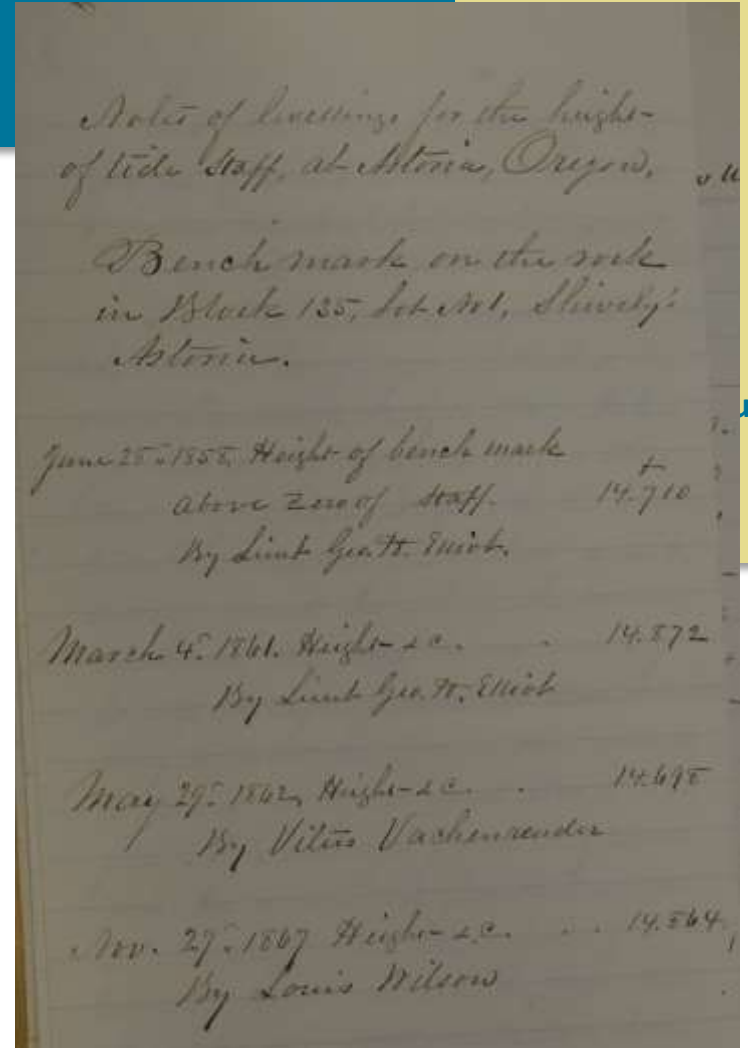 Notes of levellings for the height
of tide staff, at Astoria, Oregon.
Bench mark on the rock
in Block 135, Lot No1, Shively's
Astoria.
June 28th 1858, Height of bench mark
above zero of staff.
ft
14.710
By Lieut Geo. H. Elliot.
March 4th 1861. Height &c. . 14.872
By Lieut Geo. H. Elliot
May 29th 1862, Height &c. . 14.698
By Vitus Vachenreuder
Nov. 27th 1867 Height &c. . . 14.864
By Louis Wilson